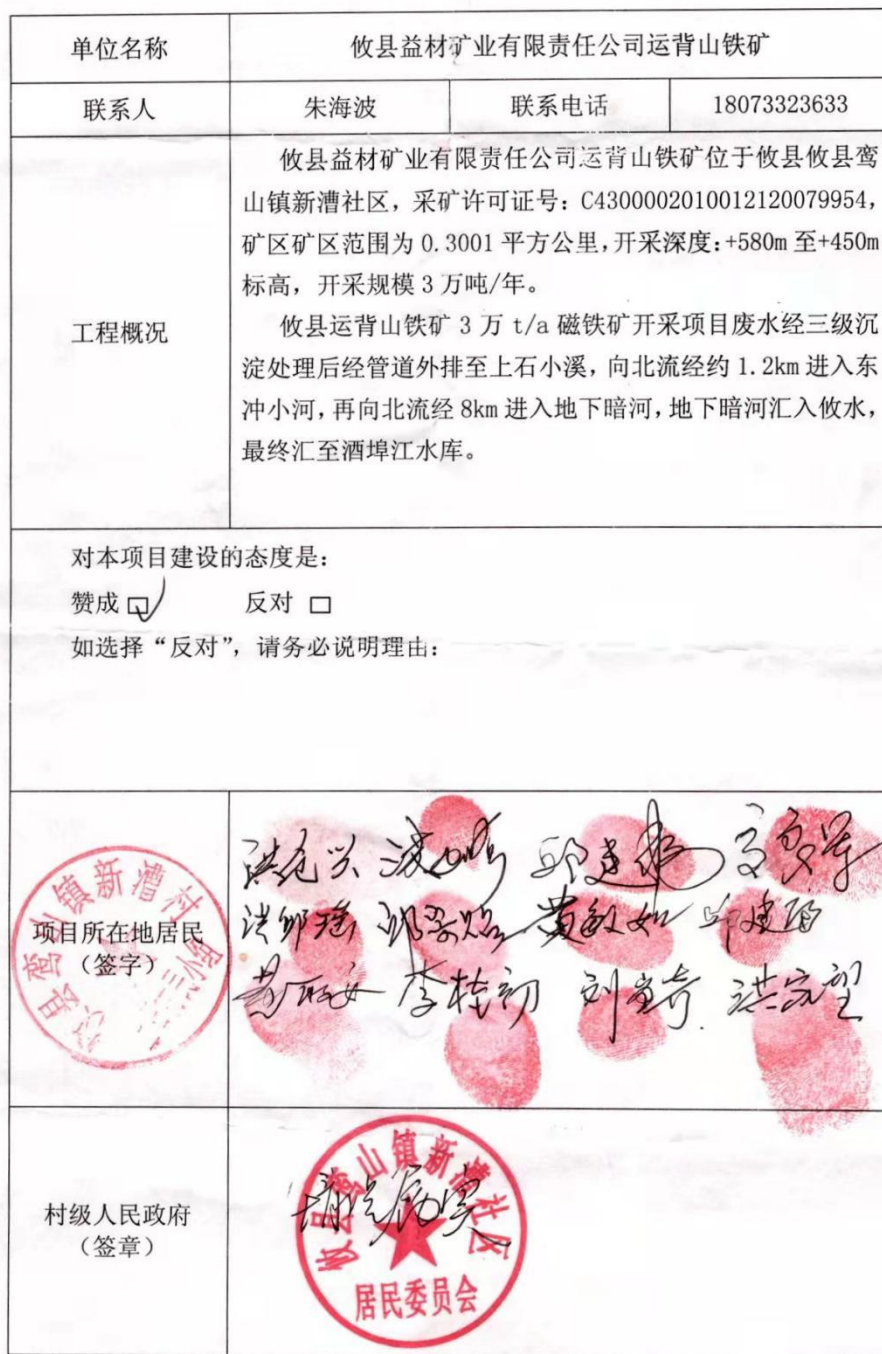 单位名称 攸县益材矿业有限责任公司运背山铁矿
联系人 朱海波 联系电话 18073323633
工程概况
攸县益材矿业有限责任公司运背山铁矿位于攸县攸县鸾
山镇新漕社区，采矿许可证号：C4300002010012120079954，
矿区矿区范围为 0.3001 平方公里，开采深度：+580m 至+450m
标高，开采规模 3 万吨/年。
攸县运背山铁矿 3 万 t/a 磁铁矿开采项目废水经三级沉
淀处理后经管道外排至上石小溪，向北流经约 1.2km 进入东
冲小河，再向北流经 8km 进入地下暗河，地下暗河汇入攸水，
最终汇至酒埠江水库。
对本项目建设的态度是：
赞成 □ 反对 □
如选择“反对”，请务必说明理由：
项目所在地居民
（签字）
攸县鸾山镇新漕村
黄敏如
李桂初 洪完望
村级人民政府
（签章）
攸县鸾山镇新漕社区
居民委员会
情况属实